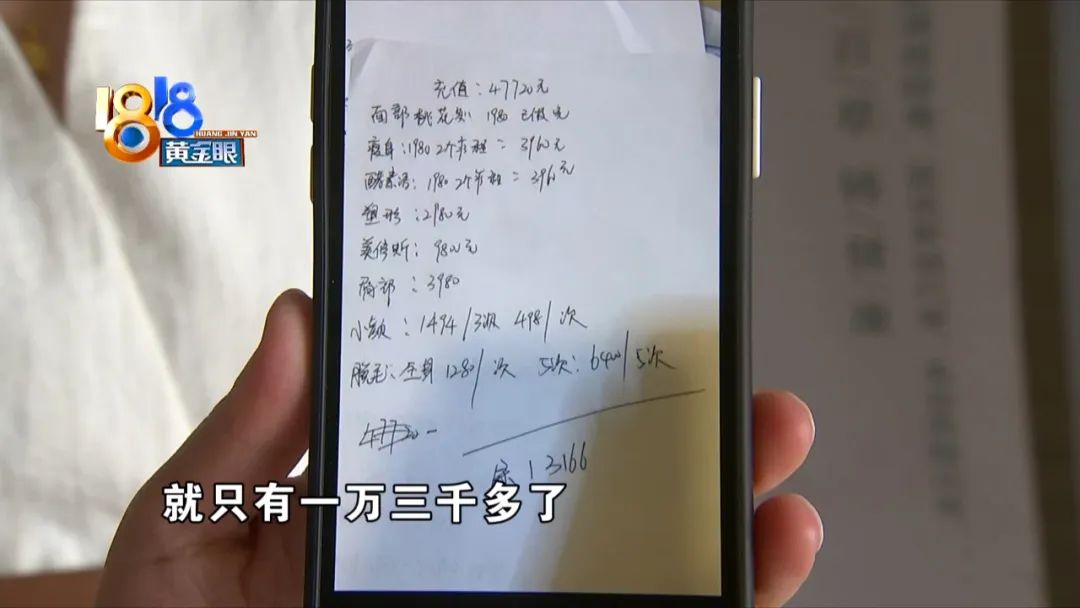 1818
HUANG JIN YAN
黄金眼
充值：47720元
面部桃花 1980 已做完
瘦身：1980 2个疗程 = 3960元
酵素浴：1980 2个疗程 = 3960元
塑形：2980元
美修斯：9800元
肩部：3980
小颜：1494/3次 498/次
脱毛：全身1280/次 5次：6400/5次
余13166
就只有一万三千多了